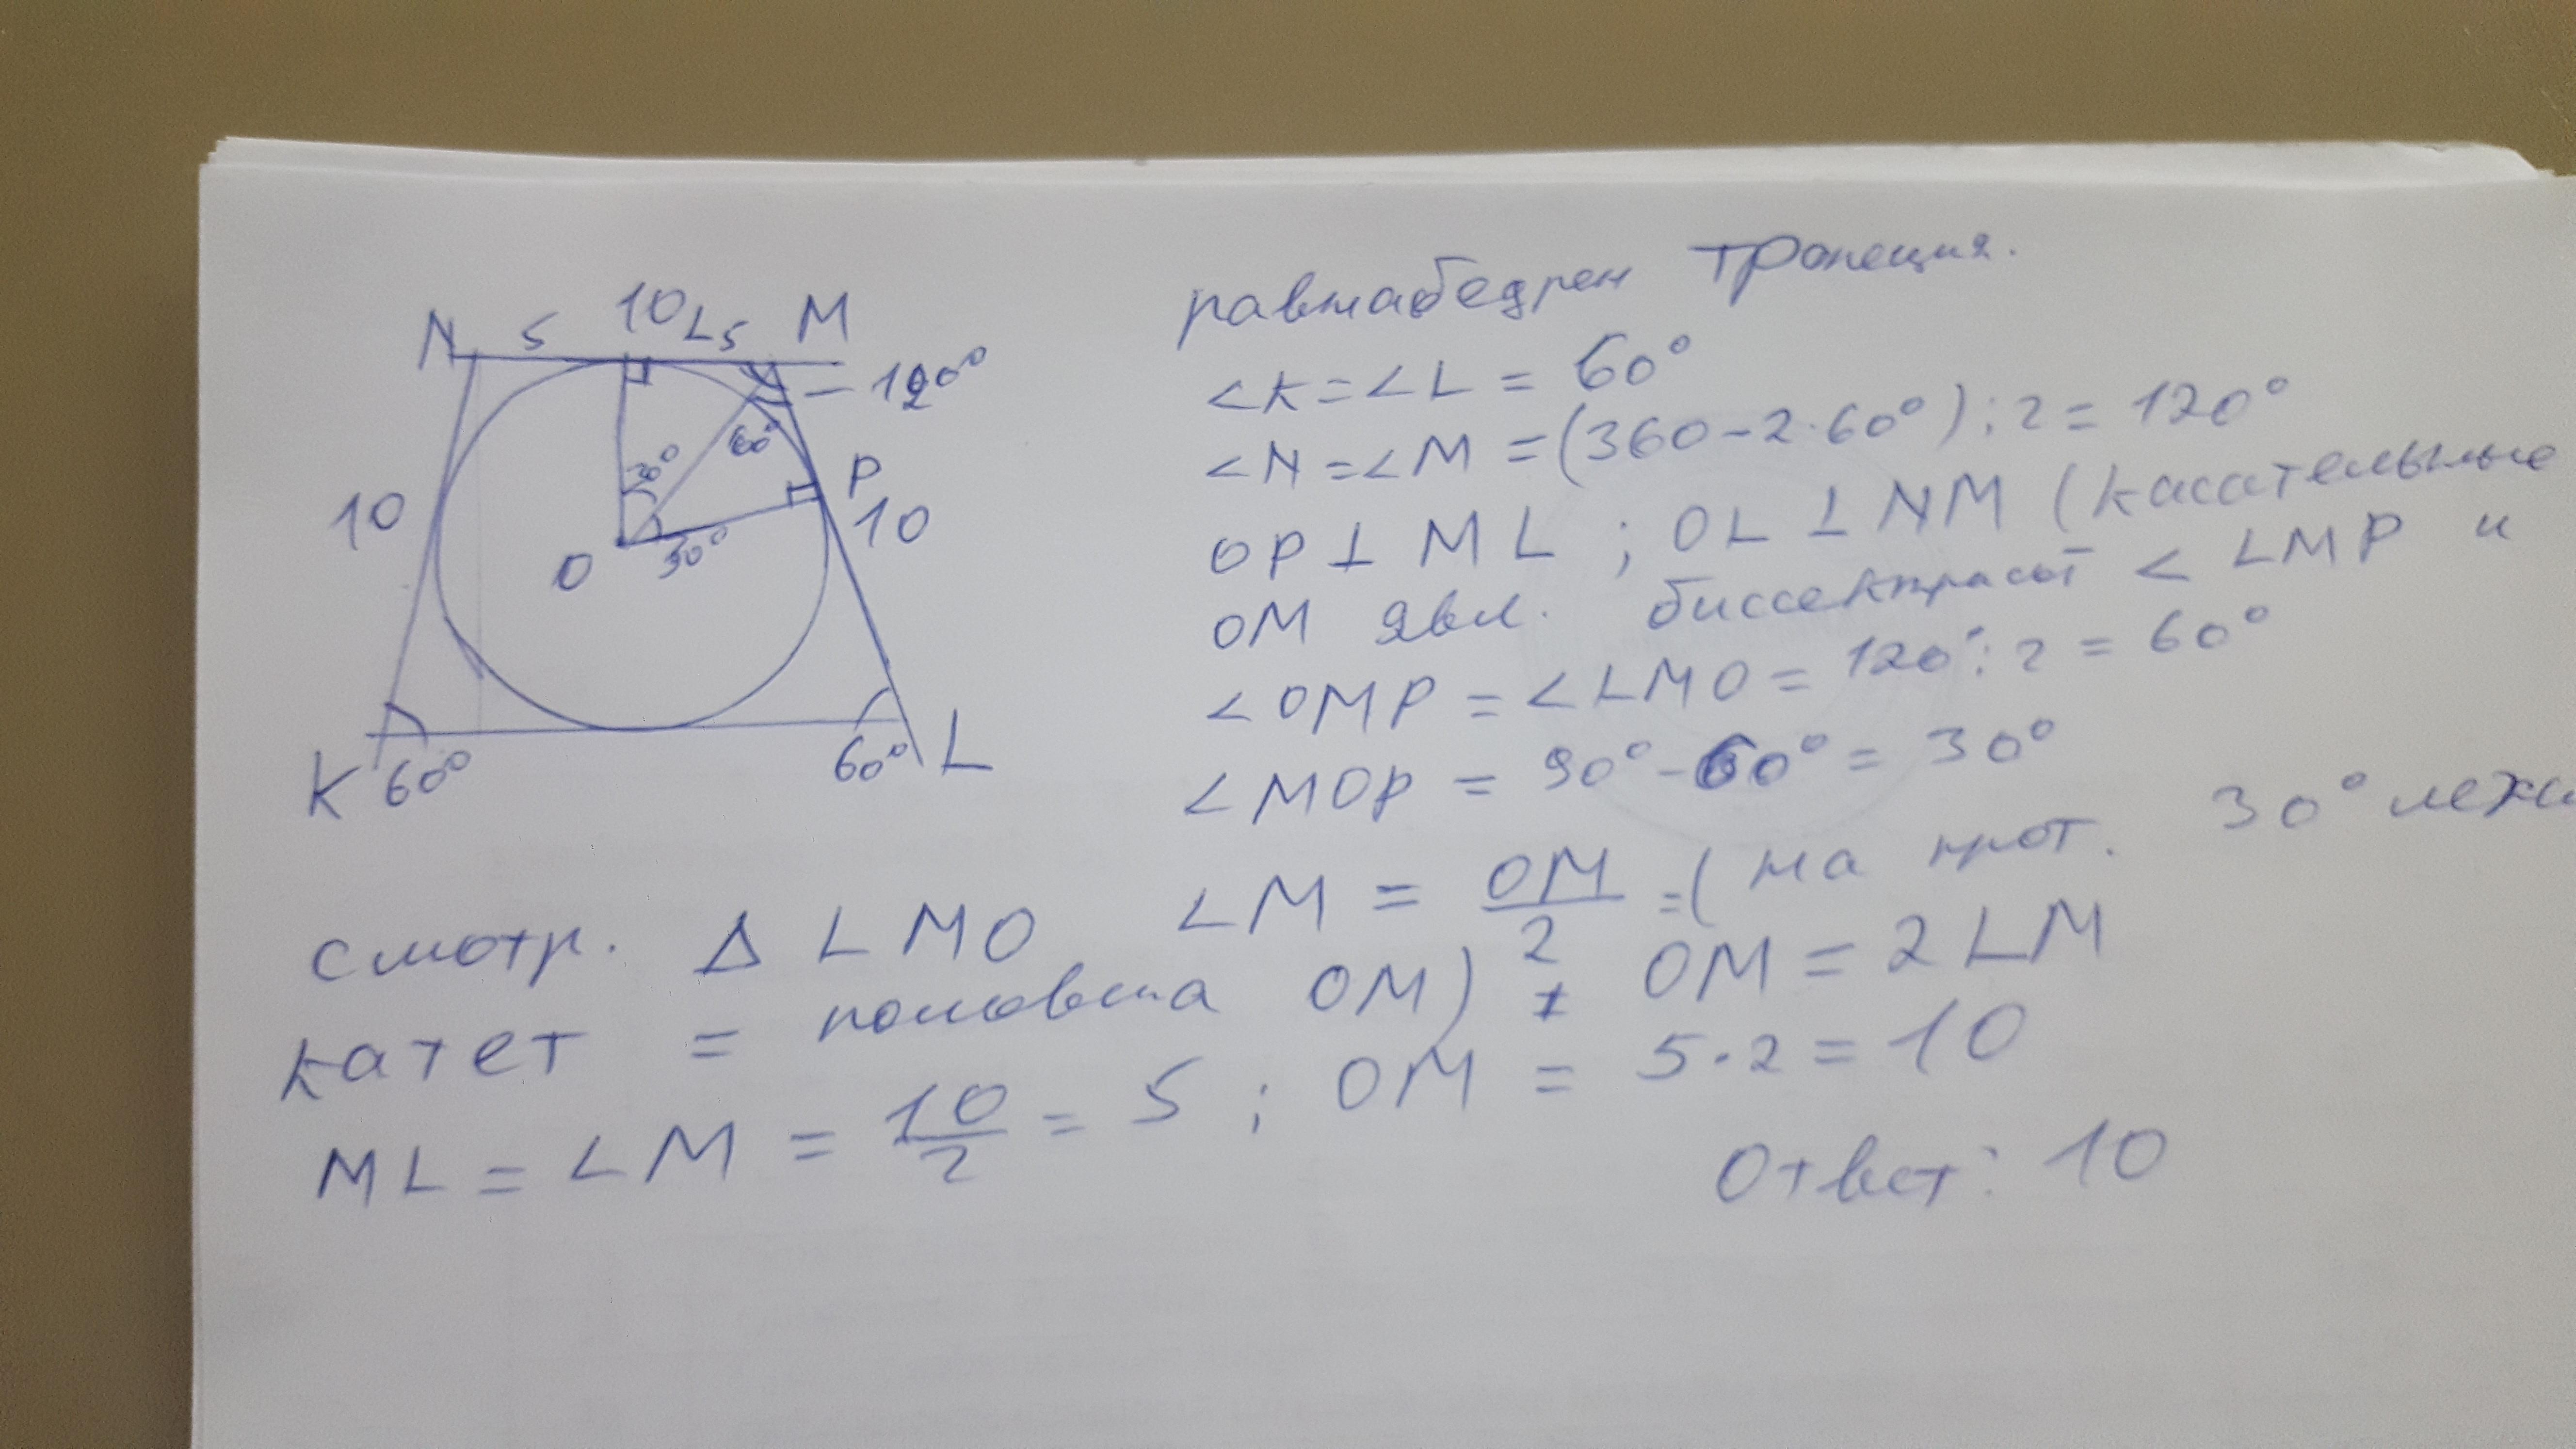 N 5 10 L 5 M
120°
30° 60° P
10 10
O 30°
K 60° 60° L
равнабедрен трапеция.
∠K=∠L = 60°
∠N=∠M =(360-2·60°):2= 120°
OP⊥ML ; OL⊥NM (касательные
OM явл. биссектрисой ∠LMP и
∠OMP = ∠LMO = 120°:2 = 60°
∠MOP = 90°-60° = 30°
смотр. Δ LMO LM = OM/2 =( на прот. 30° лежи
катет = половина OM) OM = 2LM
ML = LM = 10/2 = 5 ; OM = 5·2 = 10
Ответ: 10